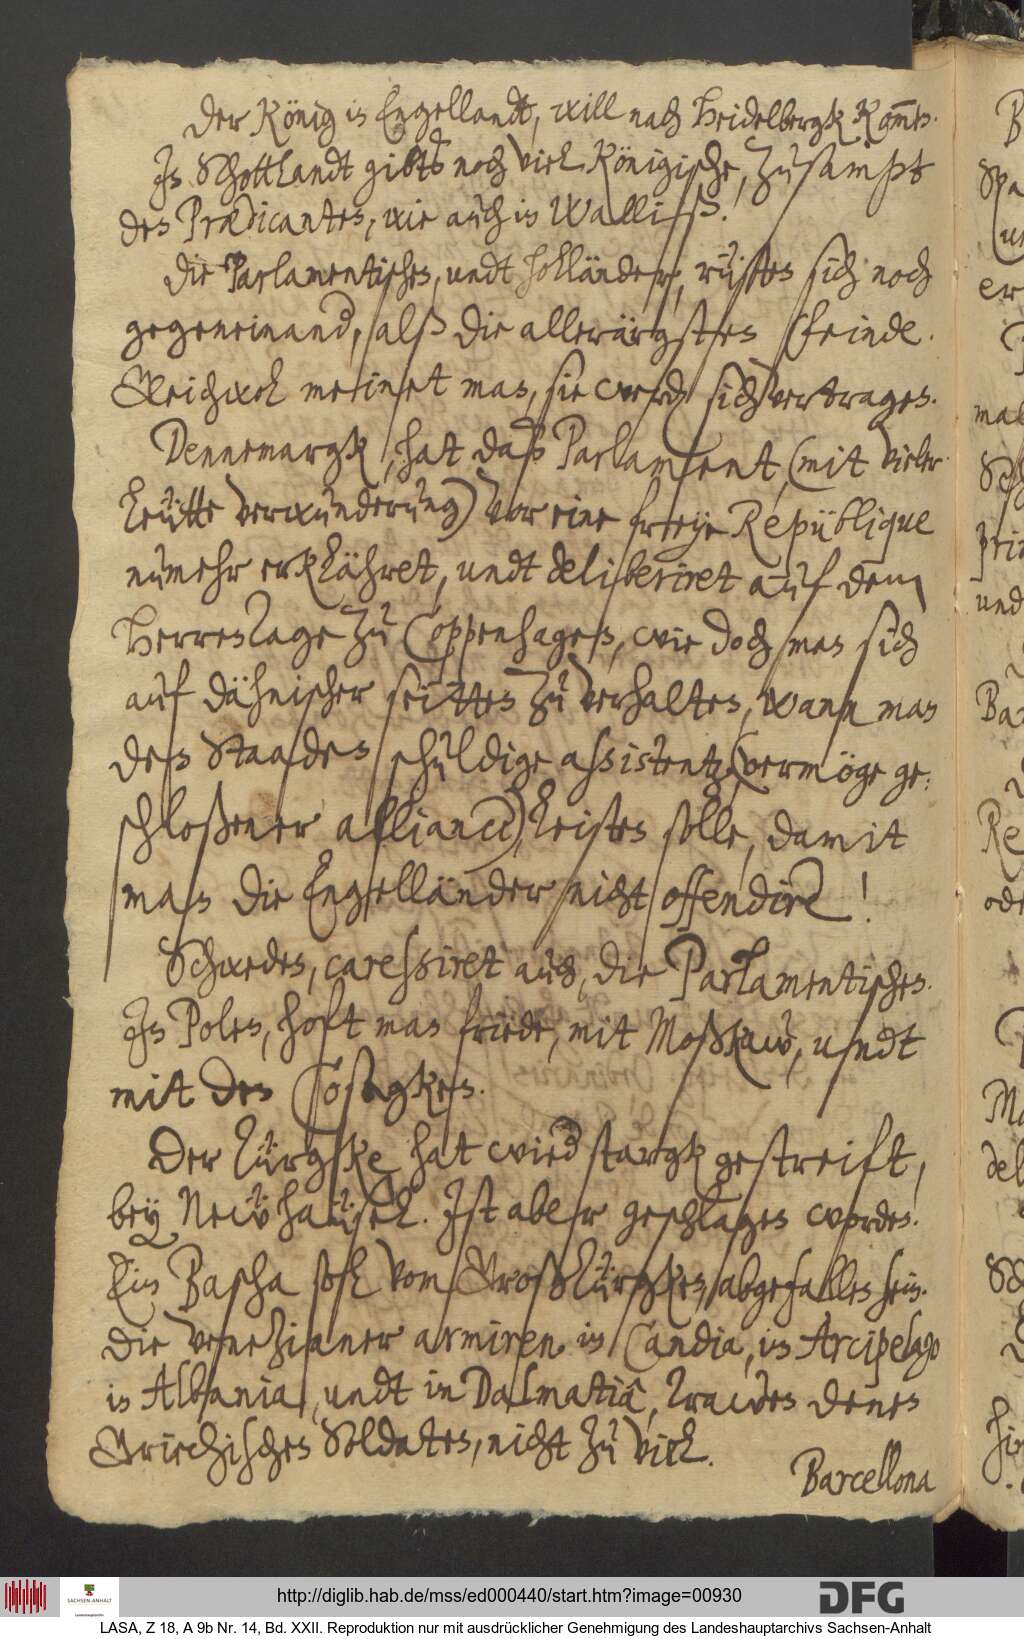 Der König in Engellandt, will nach Heidelbergk kommen.
In Schottlandt gibts noch viel Königische, zusampt
den Prædicanten, wie auch in Walliß!
Die Parlamentischen, undt Holländer, rüsten sich noch
gegeneinander, alß die allerärgsten feinde.
Gleichwol meinet man, sie werden sich vertragen.
Dennemargk, hat daß Parlament, (mit vieler
leütte verwunderung) vor eine freye Republique
numehr erklähret, undt deliberiret auf dem
HerrenTage zu Coppenhagen, wie doch man sich
auf dähnischer seitten zu verhalten, wann man
den Staaden schuldige assistentz (vermöge ge:
schloßener alliance) leisten solle, damit
man die Engelländer nicht offendire!
Schweden, caressiret auch, die Parlamentischen.
In Polen, hoft man friede, mit Moßkaw, undt
mit den Cosagken.
Der Türgke hat wieder stargk gestreift,
bey Newhäusel. Ist aber geschlagen worden.
Ein Bascha soll vom GroßTürgken, abgefallen sein.
Die Venezianer armiren in Candia, in Arcipelago
in Albania, undt in Dalmatia, Trawen denen
Griechischen Soldaten, nicht zu viel.
Barcellona
http://diglib.hab.de/mss/ed000440/start.htm?image=00930
DFG
SACHSEN-ANHALT
LASA, Z 18, A 9b Nr. 14, Bd. XXII. Reproduktion nur mit ausdrücklicher Genehmigung des Landeshauptarchivs Sachsen-Anhalt